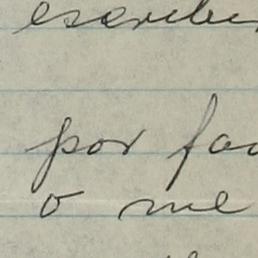 escribir
por fa
o me